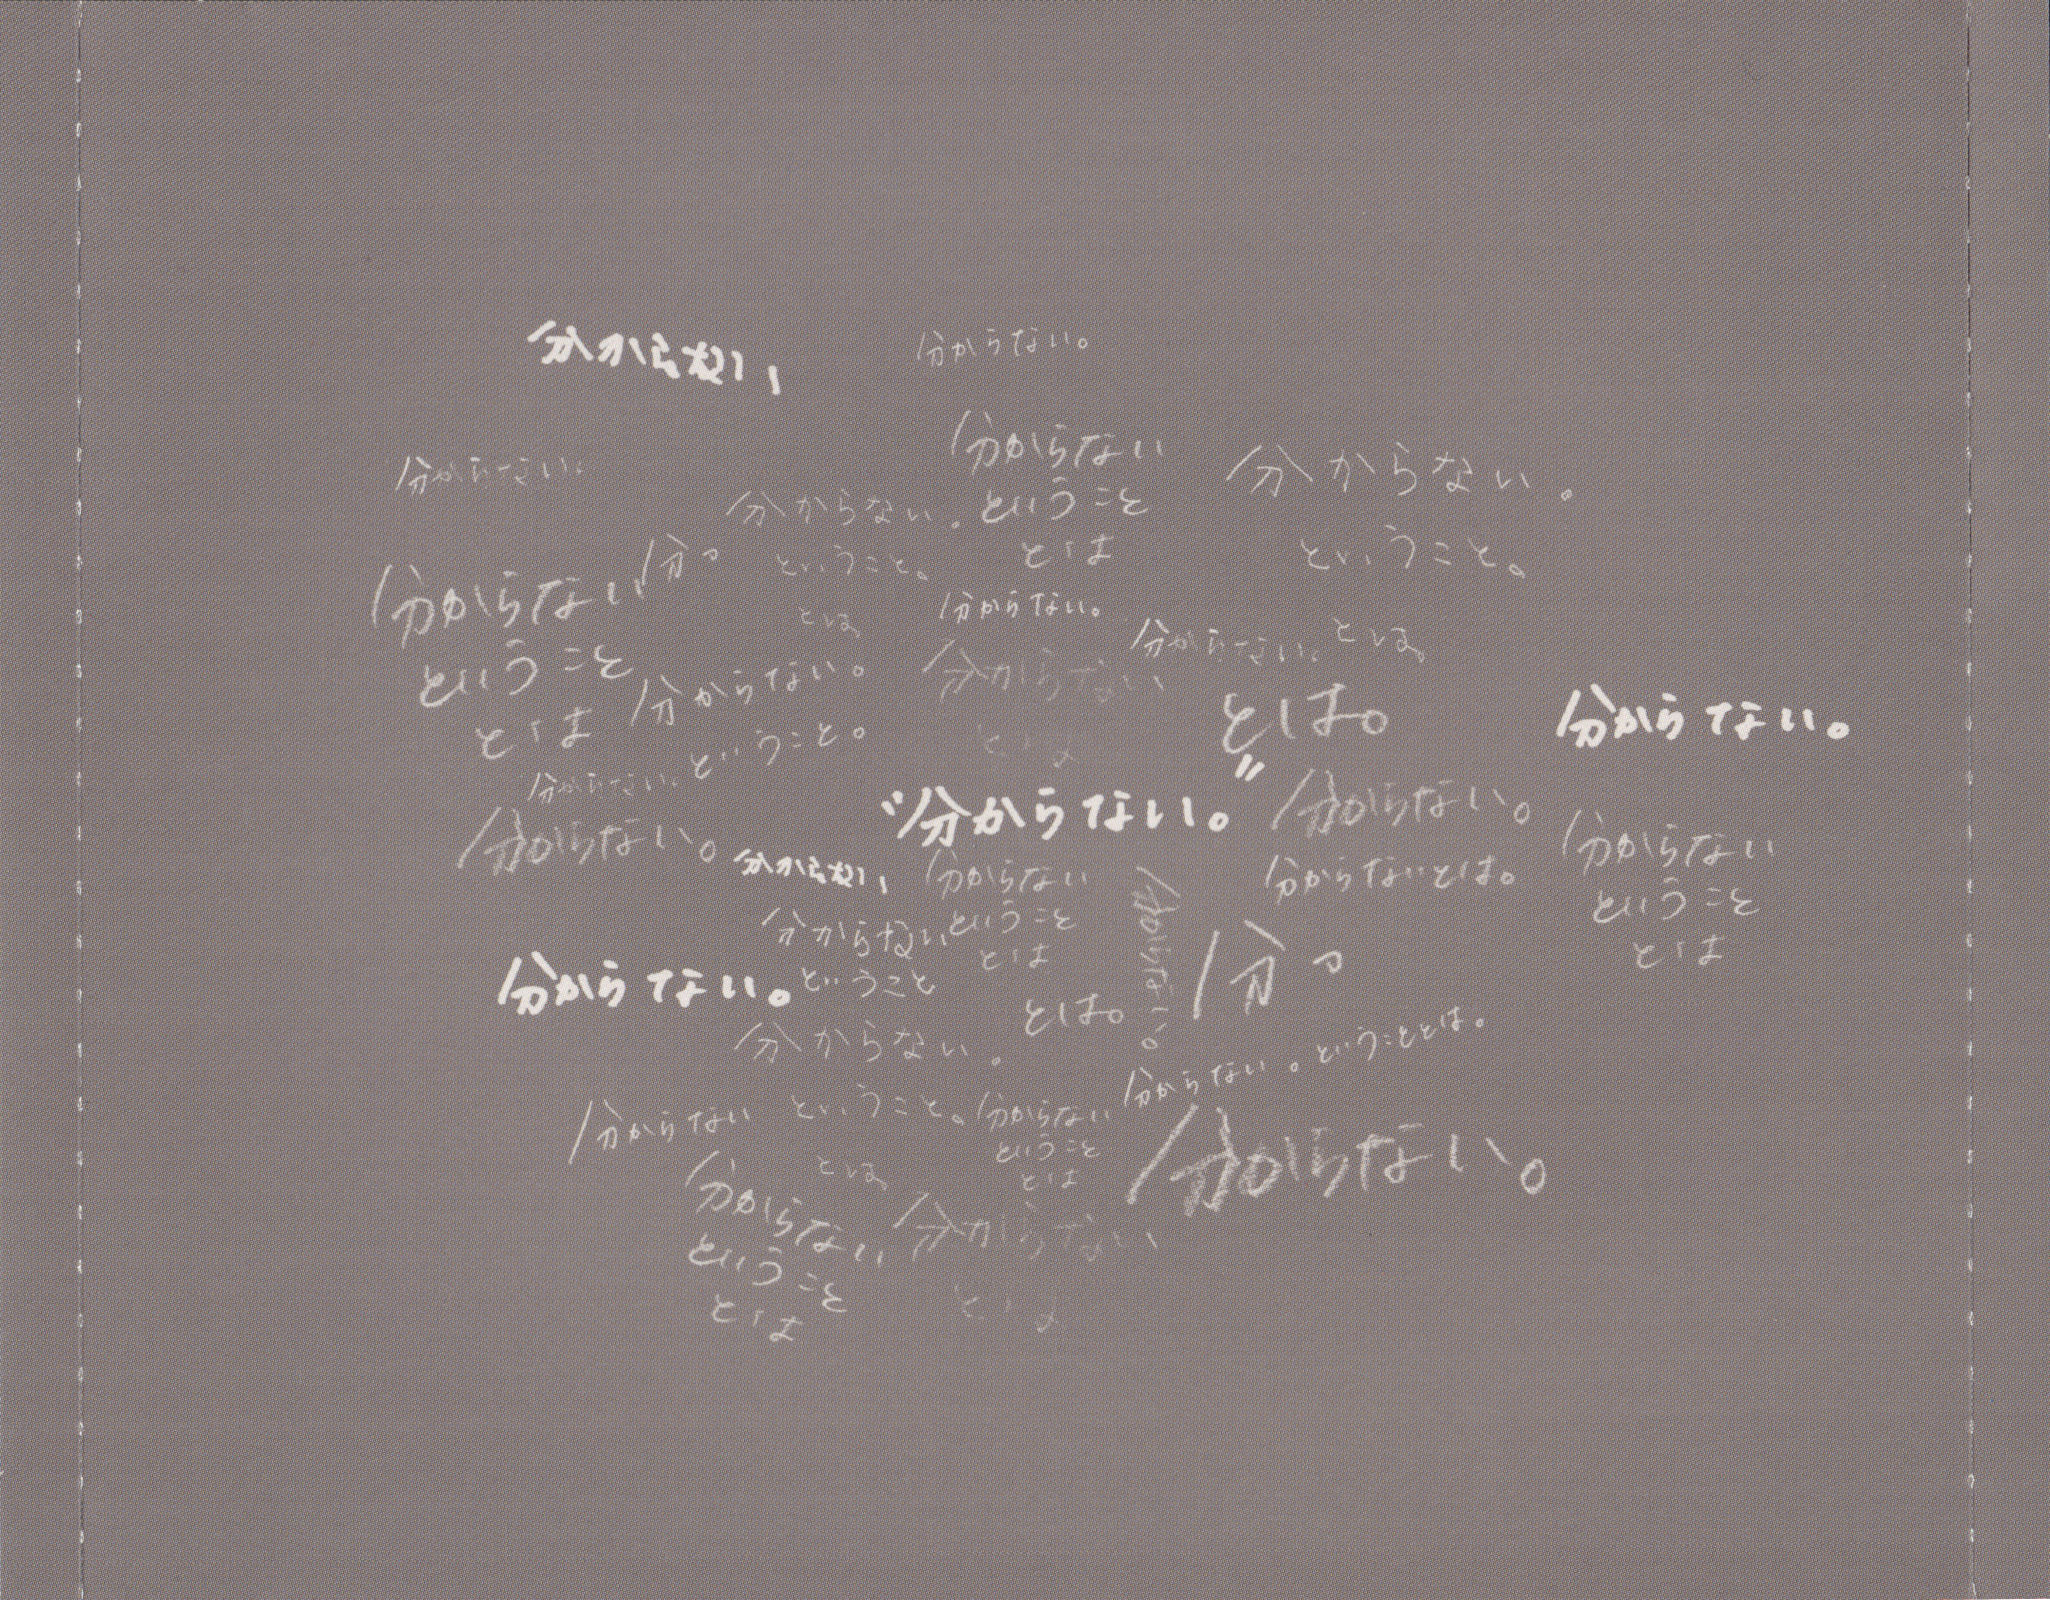 分からない、
分からない。
分からない
ということ
とは
分からない。
ということ。
分からない。
分からない。
ということ。
とは。
分
分からない
ということ
とは
分からない。
分からない。
とは。
分からない。
ということ。
分からない
とは
とは。
分からない。
分からない。
“分からない。”
分からない。
分からない。
分からない、
分からない
ということ
とは
分からないとは。
分からない
ということ
とは
分からない
ということ
分からない。
分からない。
とは。
分
分からない。
ということ。
とは。
分からない。ということとは。
分からない
分からない
ということ
とは
分からない。
分からない
ということ
とは
分からない
とは